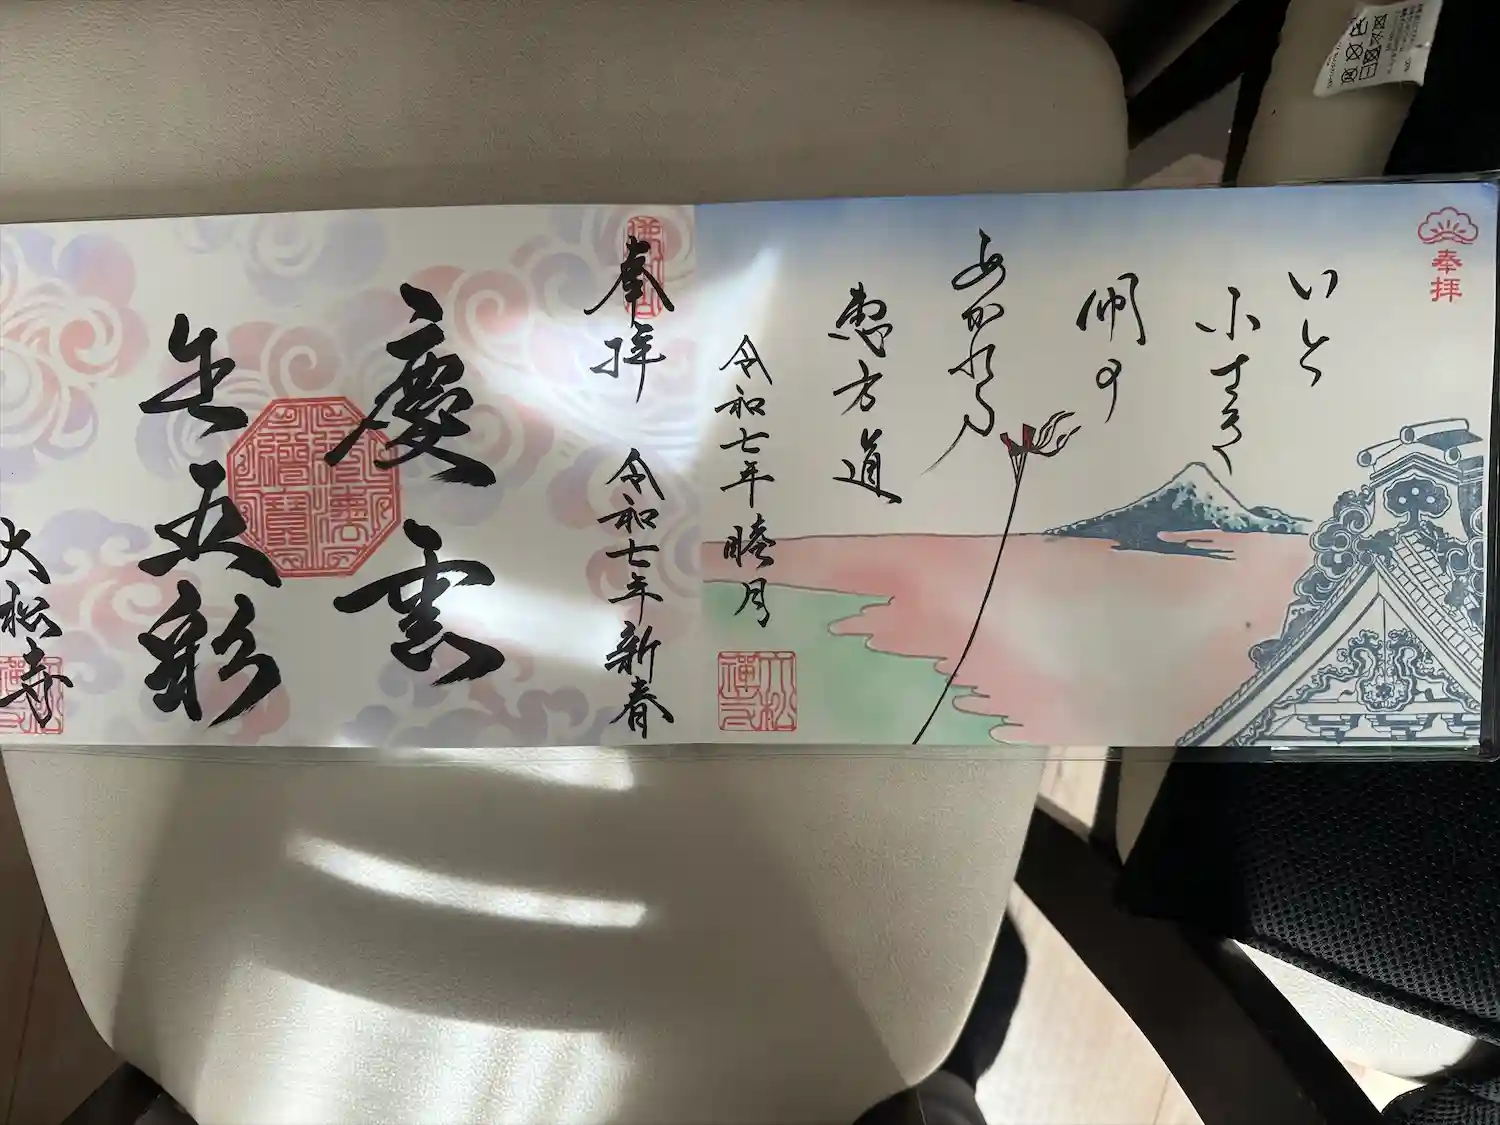 奉拝
いと
小さき
幌の
あかれる
恵方道
令和七年睦月
奉拝 令和七年新春
慶雲
生五彩
大松寺